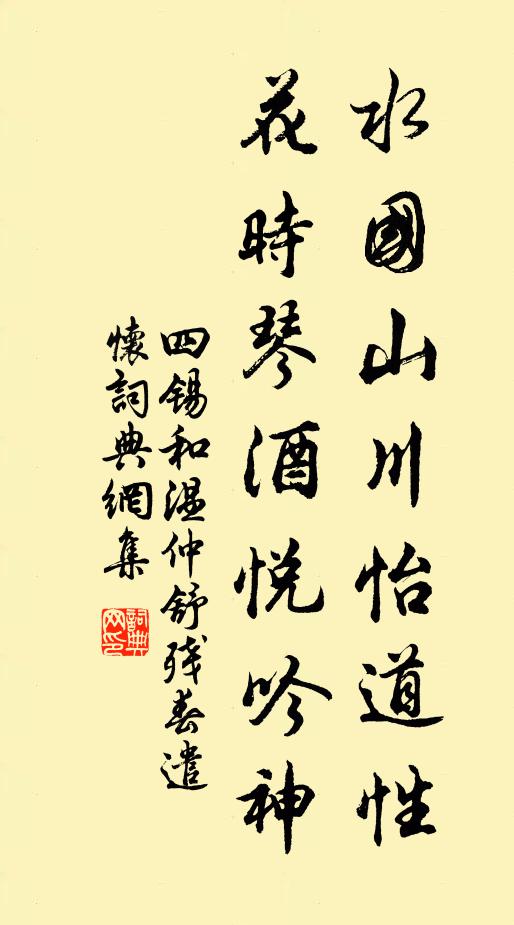 水國山川怡道性
花時琴酒悅吟神
四錫和温仲舒残春遣
懷詞典網集
詞典網印